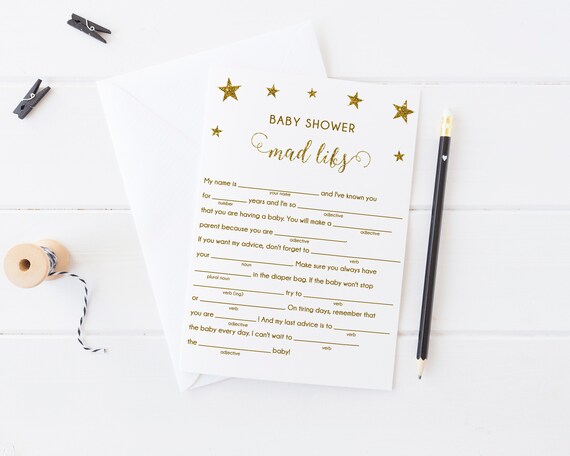 BABY SHOWER
mad libs
My name is ____________ and I've known you
your name
for ______ years and I'm so ____________
number adjective
that you are having a baby. You will make a ____________
adjective
parent because you are ____________
adjective
If you want my advice, don't forget to ____________
verb
your ____________. Make sure you always have
noun
____________ in the diaper bag. If the baby won't stop
plural noun
____________, try to ____________
verb (ing) verb
or ____________. On tiring days, remember that
verb
you are ____________! And my last advice is to ____________
adjective verb
the baby every day. I can't wait to ____________
verb
the ____________ baby!
adjective